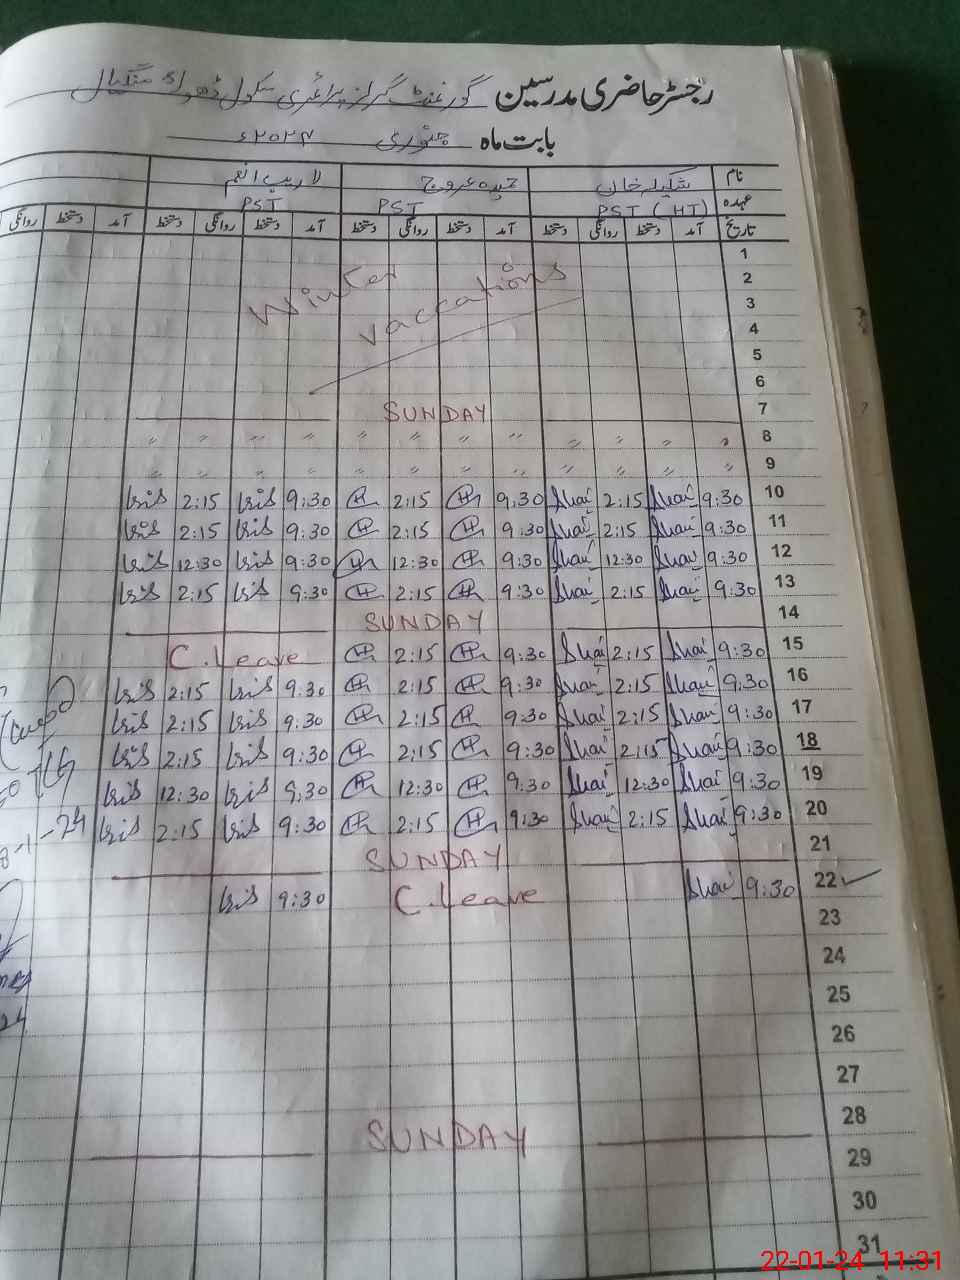 رجسٹر حاضری مدرسین گورنمنٹ گرلز پرائمری سکول ڈھوک منگیال
بابت ماہ جنوری ۲۰۲۴ء
نام شکیلہ خان عروج لاریب انعم
عہدہ PST (HT) PST PST
تاریخ آمد دستخط روانگی دستخط آمد دستخط روانگی دستخط آمد دستخط روانگی دستخط آمد دستخط روانگی
1
2
Winter vaccations
3
4
5
6
SUNDAY 7
" " " " " " " " " " " " 8
" " " " " " " " " " " " 9
2:15 9:30 2:15 9:30 Shai 2:15 Shai 9:30 10
2:15 9:30 2:15 9:30 Shai 2:15 Shai 9:30 11
12:30 9:30 12:30 9:30 Shai 12:30 Shai 9:30 12
2:15 9:30 2:15 9:30 Shai 2:15 Shai 9:30 13
SUNDAY 14
C.Leave 2:15 9:30 Shai 2:15 Shai 9:30 15
2:15 9:30 2:15 9:30 Shai 2:15 Shai 9:30 16
2:15 9:30 2:15 9:30 Shai 2:15 Shai 9:30 17
2:15 9:30 2:15 9:30 Shai 2:15 Shai 9:30 18
12:30 9:30 12:30 9:30 Shai 12:30 Shai 9:30 19
2:15 9:30 2:15 9:30 Shai 2:15 Shai 9:30 20
SUNDAY 21
9:30 C.Leave Shai 9:30 22
23
24
25
26
27
SUNDAY 28
29
30
31
8-1-24
22-01-24 11:31